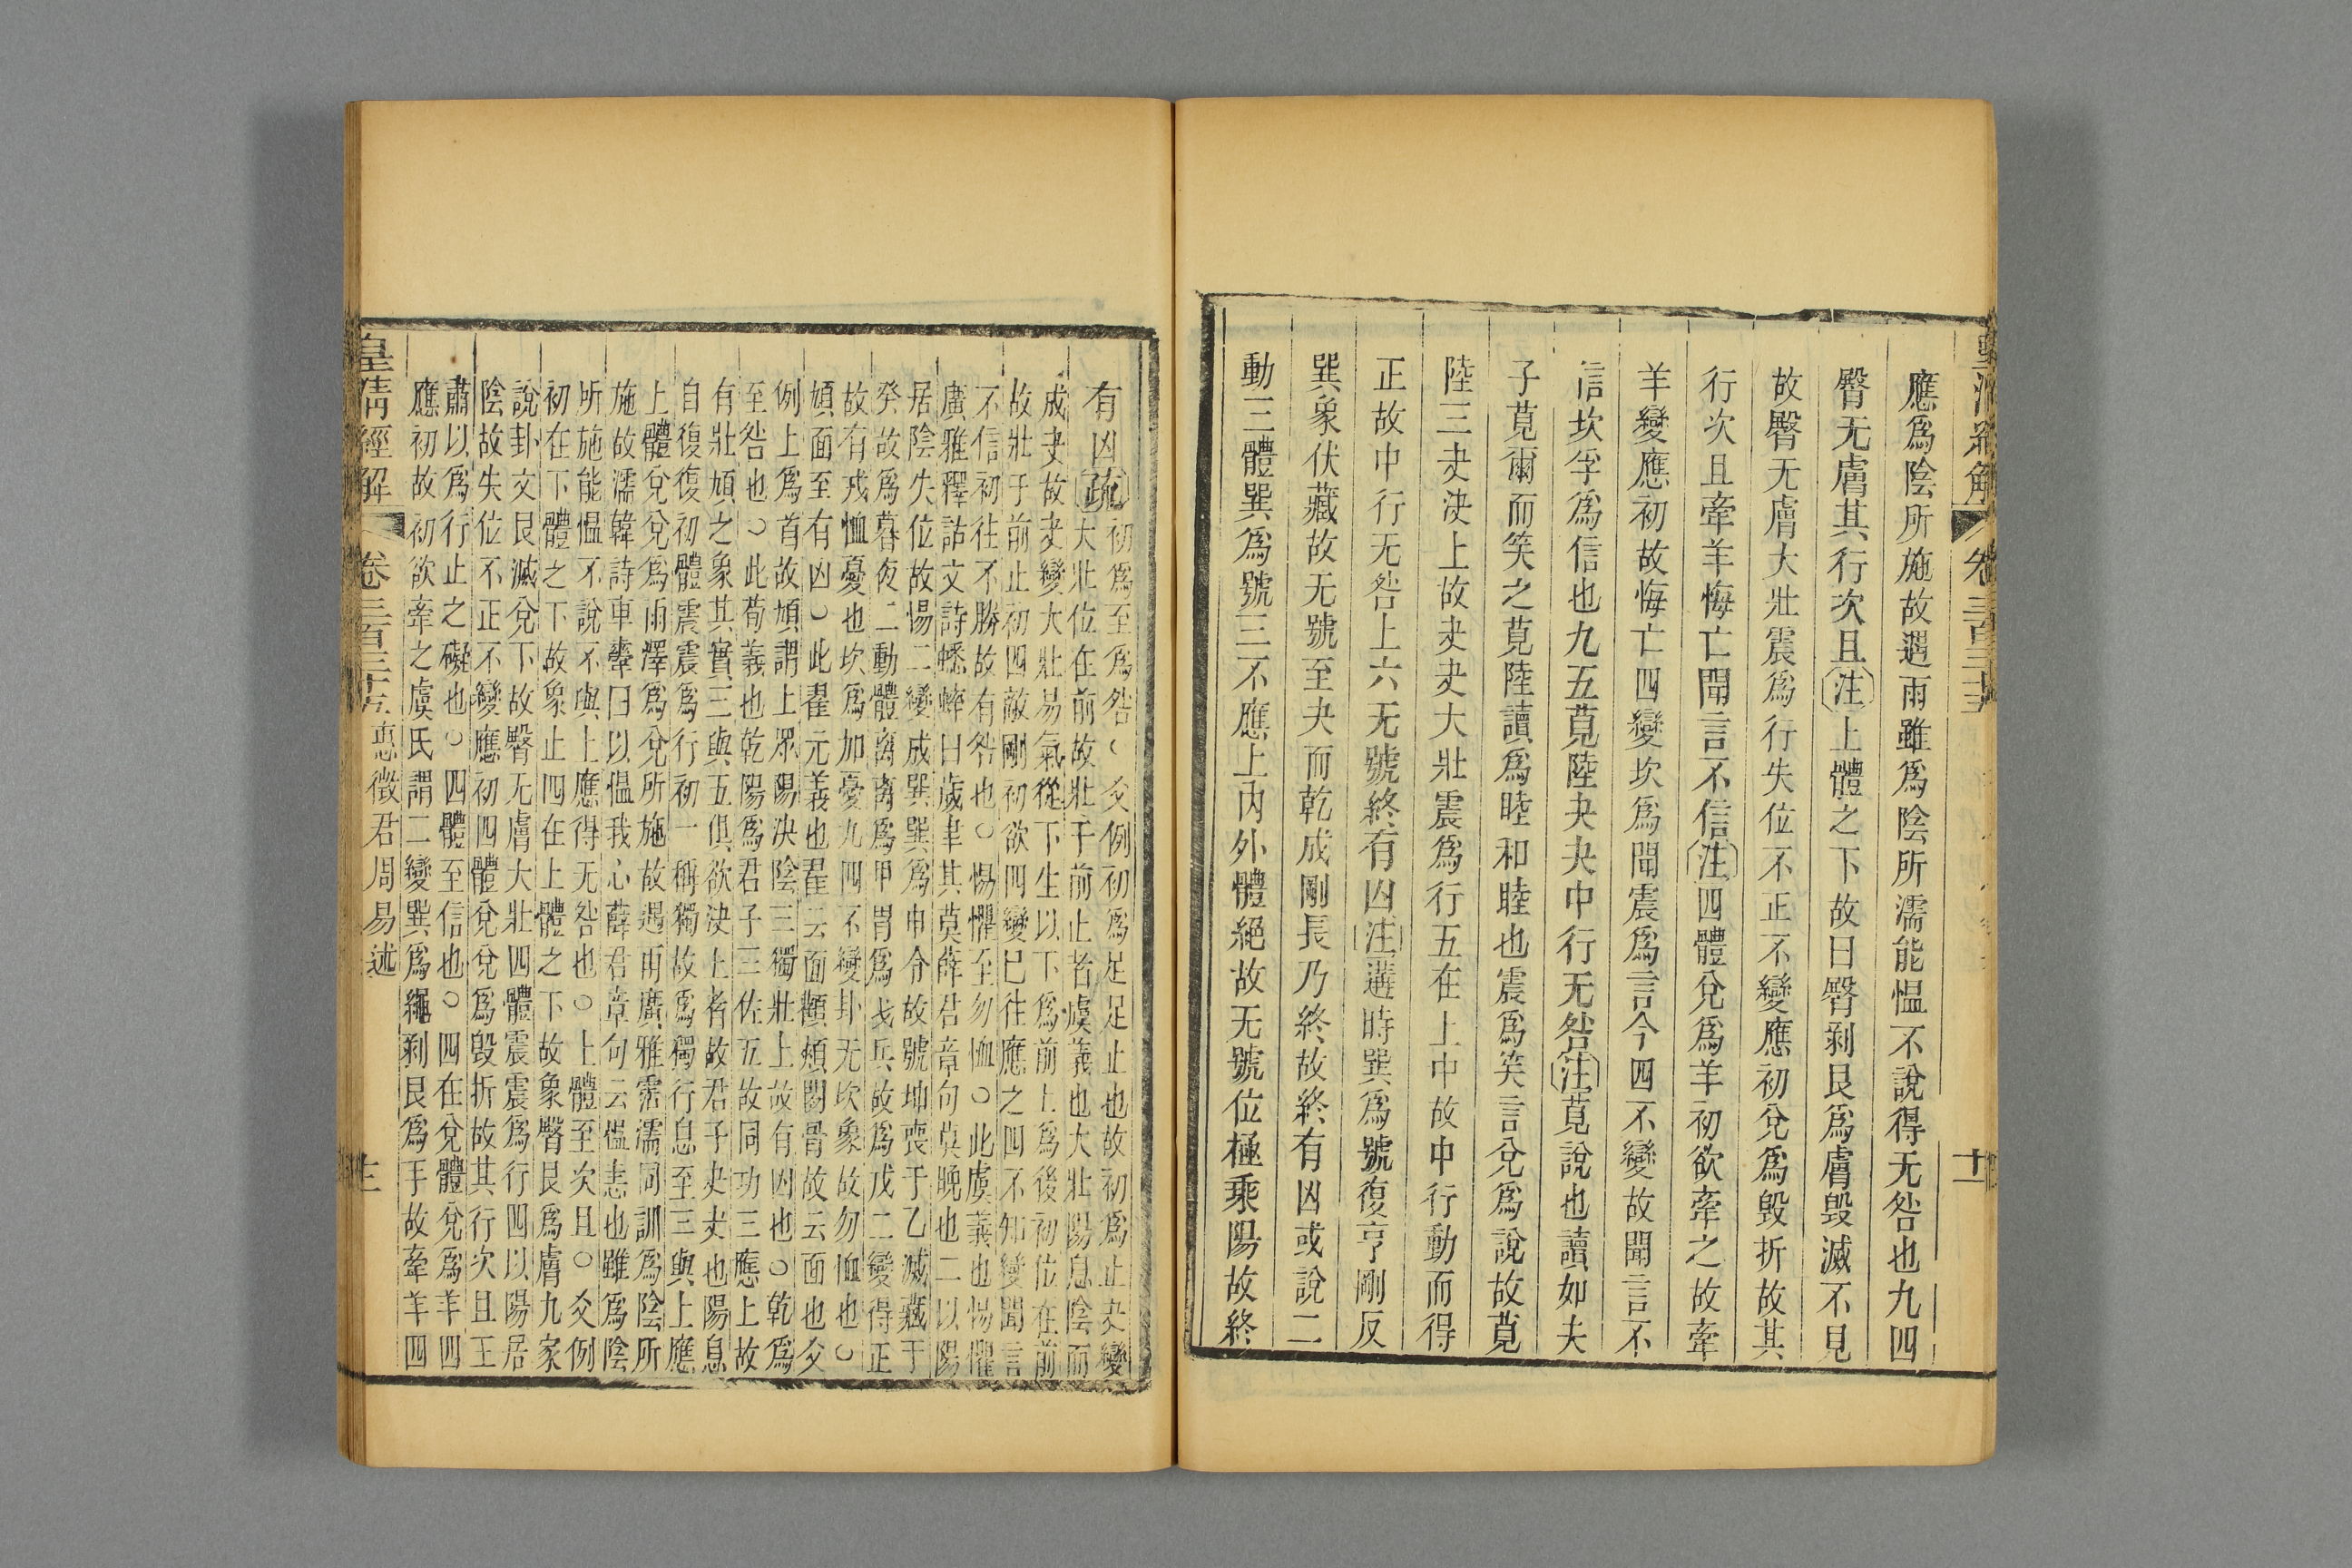 應爲陰所施故遇雨雖爲陰所濡能愠不說得无咎也九四
臀无膚其行次且注上體之下故曰臀剥艮爲膚毁滅不見
故臀无膚大壯震爲行失位不正不變應初兌爲毁折故其
行次且牽羊悔亡聞言不信注四體兌爲羊初欲牽之故牽
羊變應初故悔亡四變坎爲聞震爲言今四不變故聞言不
信坎孚爲信也九五莧陸夬夬中行无咎注莧說也讀如夫
子莧爾而笑之莧陸讀爲睦和睦也震爲笑言兌爲說故莧
陸三夬決上故夬夬大壯震爲行五在上中故中行動而得
正故中行无咎上六无號終有凶注遘時巽爲號復亨剛反
巽象伏藏故无號至夬而乾成剛長乃終故終有凶或說二
動三體巽爲號三不應上内外體絕故无號位極乘陽故終
有凶疏初爲至爲咎○爻例初爲足足止也故初爲止夬變
大壯位在前故壯于前止者虞義也大壯陽息陰而
成夬故夬變大壯易氣從下生以下爲前上爲後初位在前
故壯于前止初四敵剛初欲四變已往應之四不知變聞言
不信初往不勝故有咎也○惕懼至勿恤○此虞義也惕懼
廣雅釋詁文詩蟋蟀曰歲聿其莫薛君章句莫晚也二以陽
居陰失位故惕二變成巽巽爲申命故號坤喪于乙滅藏于
癸故爲暮夜二動體离离爲甲胄爲戈兵故爲戎二變得正
故有戎恤憂也坎爲加憂九四不變卦无坎象故勿恤也○
頄面至有凶○此翟元義也翟云面顴頰閒骨故云面也爻
例上爲首故頄謂上眾陽決陰三獨壯上故有凶也○乾爲
至咎也○此荀義也乾陽爲君子三佐五故同功三應上故
有壯頄之象其實三與五俱欲決上者故君子夬夬也陽息
自復復初體震震爲行初一稱獨故爲獨行息至三與上應
上體兌兌爲雨澤爲兌所施故遇雨廣雅霑濡同訓爲陰所
施故濡韓詩車舝曰以愠我心薛君章句云愠恚也雖爲陰
所施能愠不說不與上應得无咎也○上體至次且○爻例
初在下體之下故象止四在上體之下故象臀艮爲膚九家
說卦文艮滅兌下故臀无膚大壯四體震震爲行四以陽居
陰故失位不正不變應初四體兌兌爲毁折故其行次且王
肅以爲行止之礙也○四體至信也○四在兌體兌爲羊四
應初故初欲牽之虞氏謂二變巽爲繩剥艮爲手故牽羊四
皇清經解 卷三百三十五惠徵君周易述